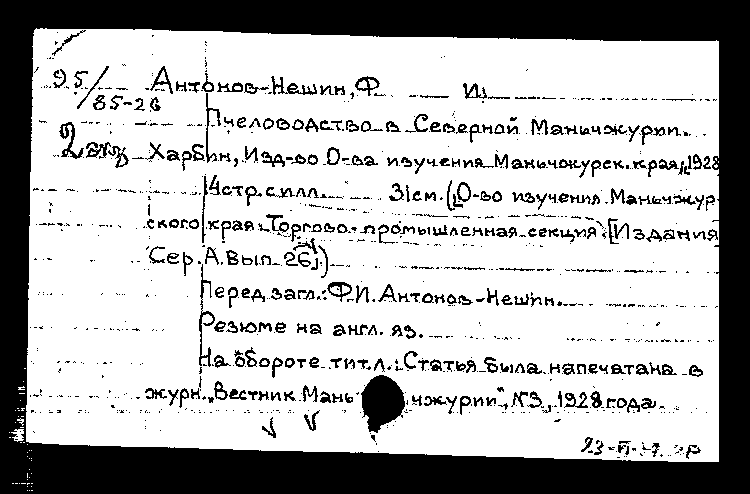 95/85-26
Антонов-Нешин, Ф. И.
Пчеловодство в Северной Маньчжурии.
2 экз Харбин, Изд-во О-ва изучения Маньчжурск. края, 1928
14 стр. с илл. 31 см. (О-во изучения Маньчжур-
ского края. Торгово-промышленная секция. [Издания
Сер. А. Вып. 26].)
Перед загл.: Ф.И. Антонов-Нешин.
Резюме на англ. яз.
На обороте тит. л.: Статья была напечатана в
журн. „Вестник Маньчжурии", №3, 1928 года.